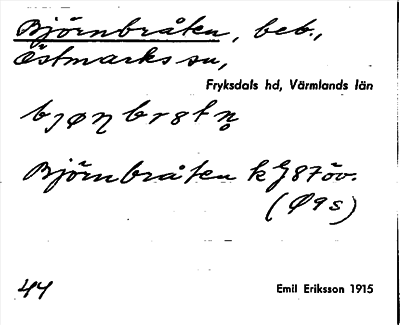 Björnbråten, beb.,
Östmarks sn,
Fryksdals hd, Värmlands län
Björnbråten k Ef 87 öv.
(Ø 9 s)
44
Emil Eriksson 1915